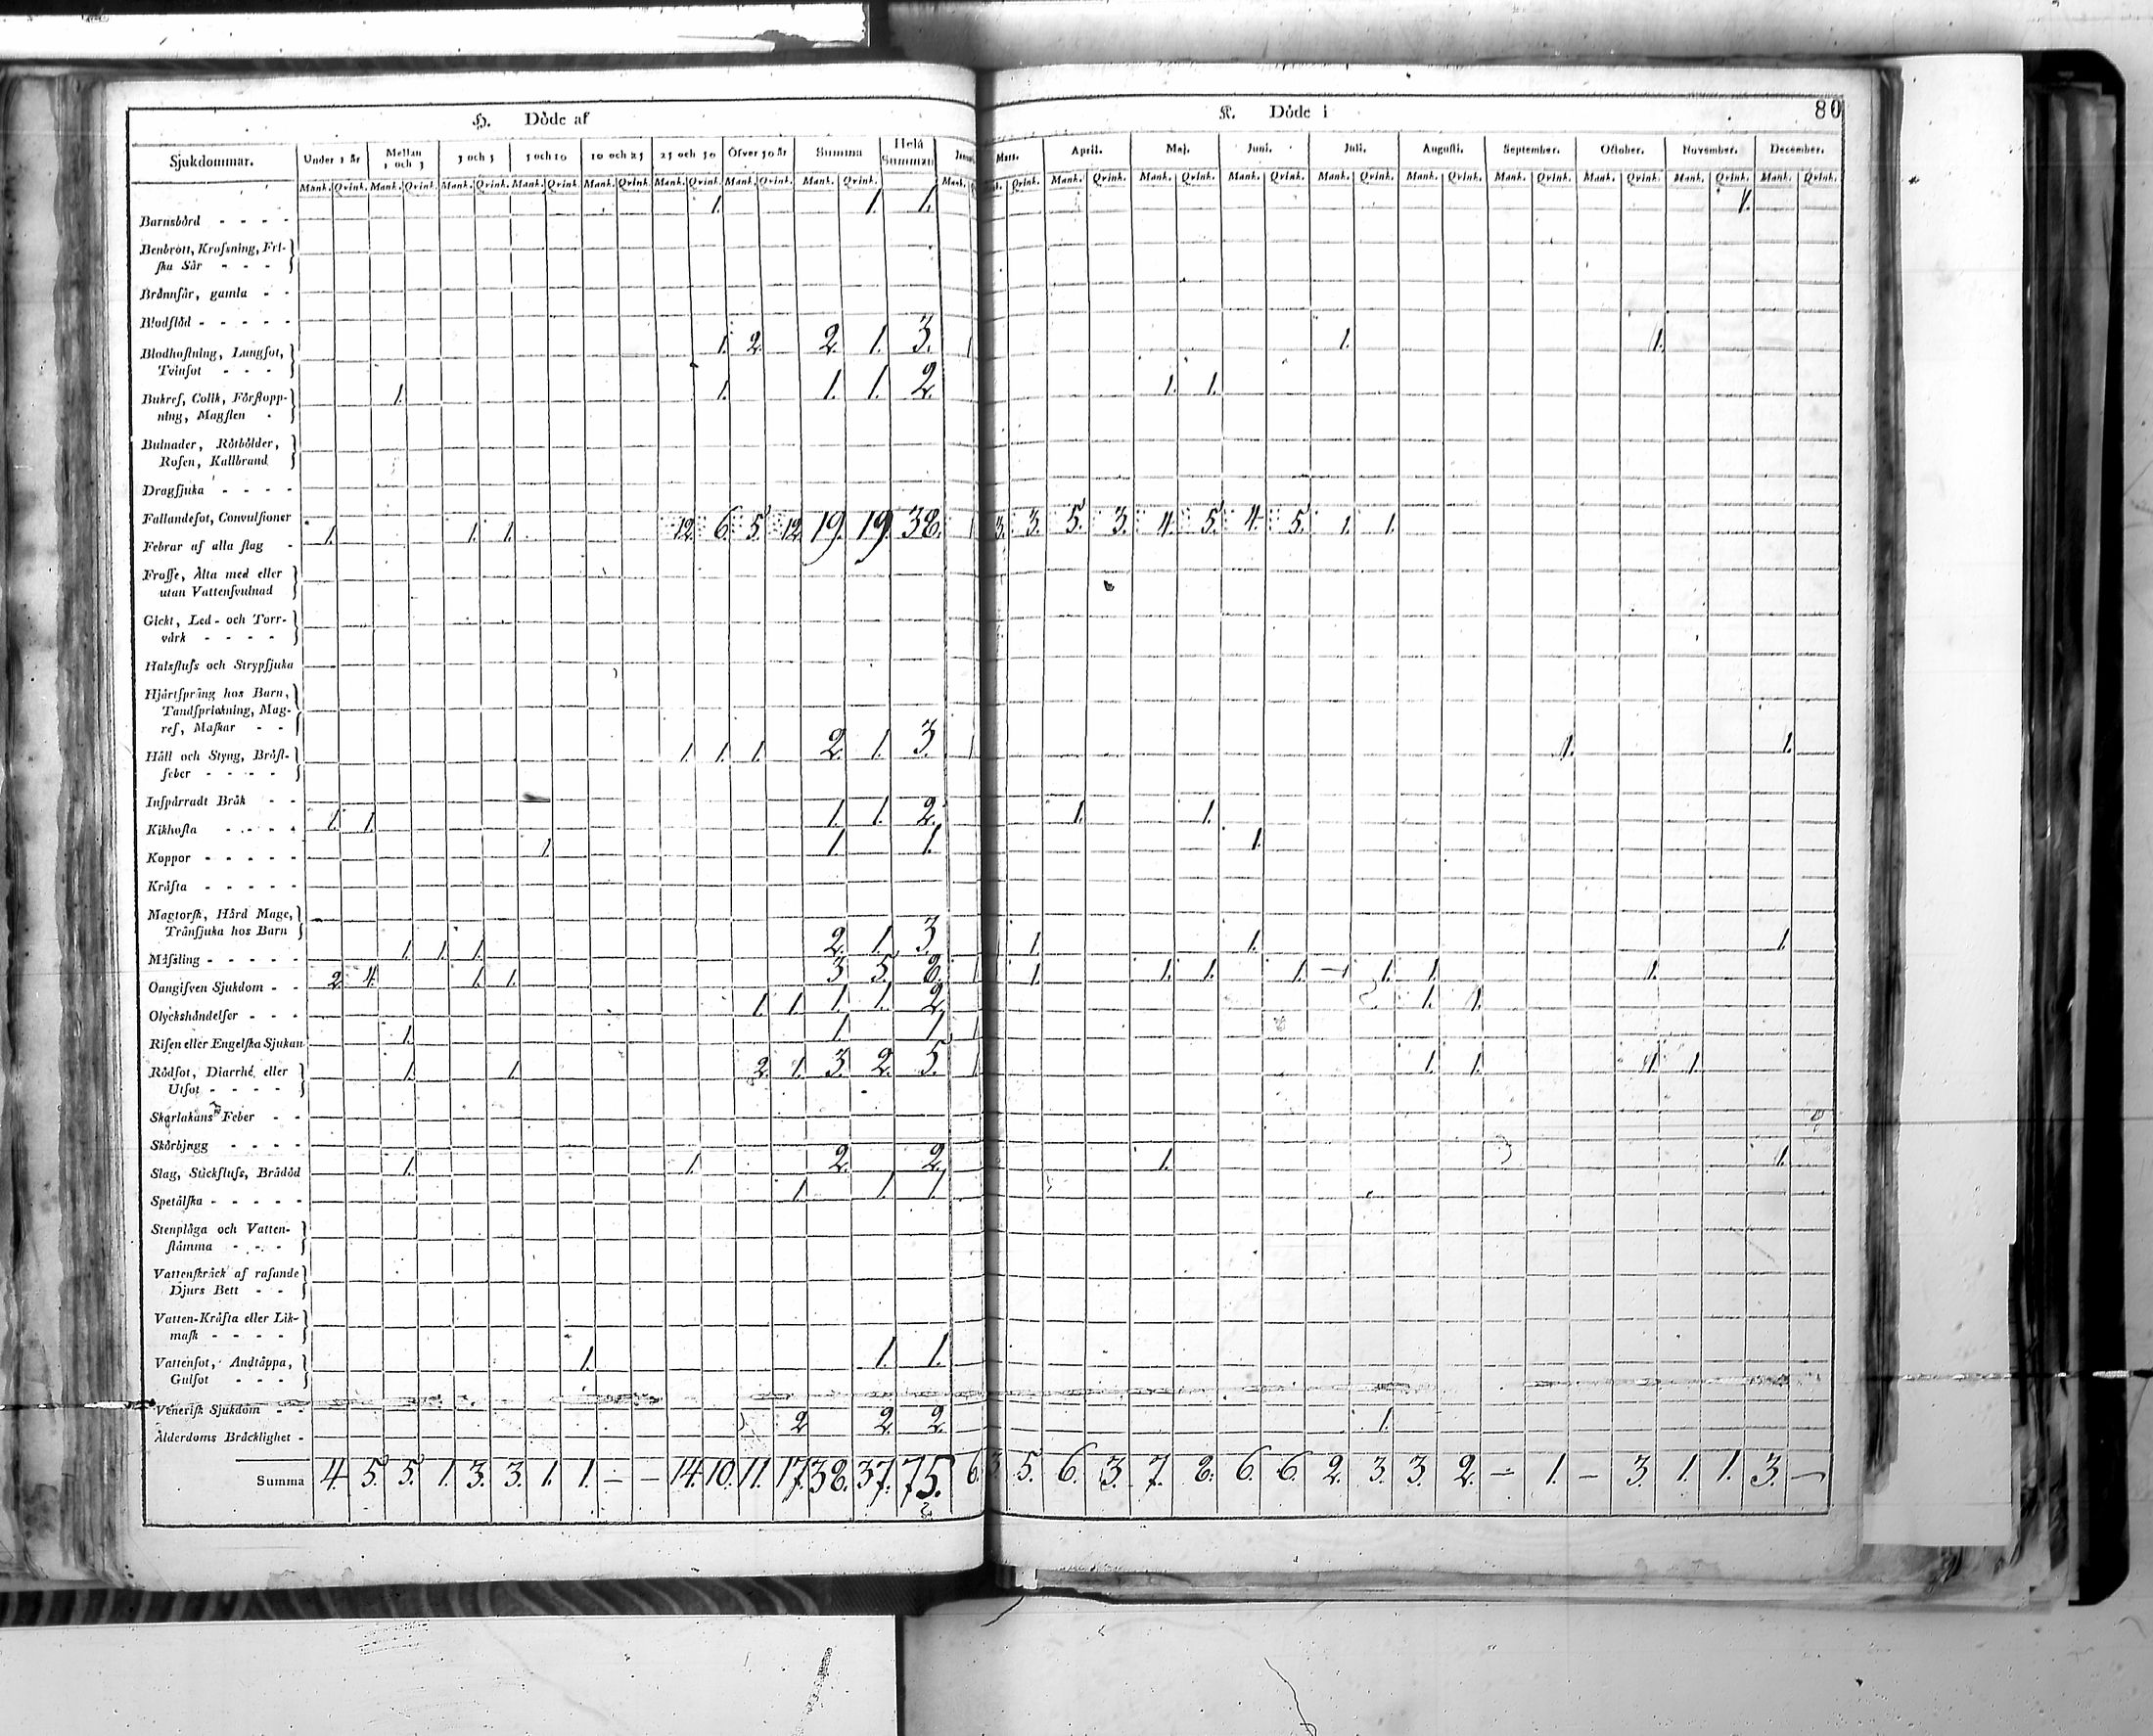 H. Döde af
K. Döde i 80
Sjukdommar. Under 1 år Mellan 1 och 3 3 och 5 5 och 10 10 och 25 25 och 50 Öfver 50 år Summa Hela Summan Mart. April. Maj. Juni. Juli. Augusti. September. October. November. December.
Mank. Qvink. Mank. Qvink. Mank. Qvink. Mank. Qvink. Mank. Qvink. Mank. Qvink. Mank. Qvink. Mank. Qvink. Mank. Qvink. Mank. Qvink. Mank. Qvink. Mank. Qvink. Mank. Qvink. Mank. Qvink. Mank. Qvink. Mank. Qvink. Mank. Qvink. Mank. Qvink.
Barnsbörd - - - - 1. 1. 1. 1.
Benbrott, Krossning, Fri-
ska Sår - - -
Brännsår, gamla - -
Blodflöd - - - - -
Blodhostning, Lungsot, 1. 2. 2. 1. 3. 1 1. 1.
Tvinsot - - -
Bukref, Colik, Förstopp- 1. 1. 1. 1. 2. 1. 1.
ning, Magsten -
Bulnader, Rötbölder,
Rosen, Kallbrand
Dragsjuka - - - -
Fallandesot, Convulsioner
Febrar af alla slag - 1. 1. 1. 12. 6. 5. 12. 19. 19. 38. 1 3. 3. 5. 3. 4. 5. 4. 5. 1. 1.
Frosse, Älta med eller
utan Vattensvulnad
Gickt, Led- och Torr-
värk - - - -
Halsfluss och Strypsjuka
Hjärtsprång hos Barn,
Tandsprickning, Mag-
ref, Maskar - -
Håll och Styng, Bröst- 1. 1. 1. 2. 1. 3. 1 1. 1.
feber - - - -
Inspärradt Bråk - -
Kikhosta - - - - 1. 1. 1. 1. 2. 1. 1.
Koppor - - - - - 1. 1. 1. 1.
Kräfta - - - - -
Magtorsk, Hård Mage,
Trånsjuka hos Barn
Mässling - - - - - 1. 1. 1. 2. 1. 3. 1. 1. 1.
Oangifven Sjukdom - - 2. 4. 1. 1. 3. 5. 8. 1 1. 1. 1. 1. 1 1. 1. 1.
Olyckshändelser - - - 1. 1. 1. 1. 2. 1. 1.
Risen eller Engelska Sjukan 1. 1. 1. 1
Rödsot, Diarrhé eller 1. 1. 2. 1. 3. 2. 5. 1 1. 1. 1. 1.
Utsot - - - -
Skarlakans Feber - -
Skörbjugg - - - -
Slag, Stickfluss, Brådöd 1. 1. 2. 2. 1. 1.
Spetälska - - - - - 1. 1. 1.
Stenplåga och Vatten-
stämma - - - -
Vattenskräck af rasande
Djurs Bett - -
Vatten-Kräfta eller Lik-
mask - - - -
Vattensot, Andtäppa, 1. 1. 1.
Gulsot - - -
Venerisk Sjukdom - -
Ålderdoms Bräcklighet - 2 2. 2. 1.
Summa 4. 5. 5. 1. 3. 3. 1. 1. - - 14. 10. 11. 17. 38. 37. 75. 6. 3 5. 6. 3. 7. 8. 6. 6. 2. 3. 3. 2. - 1. - 3. 1. 1. 3. -